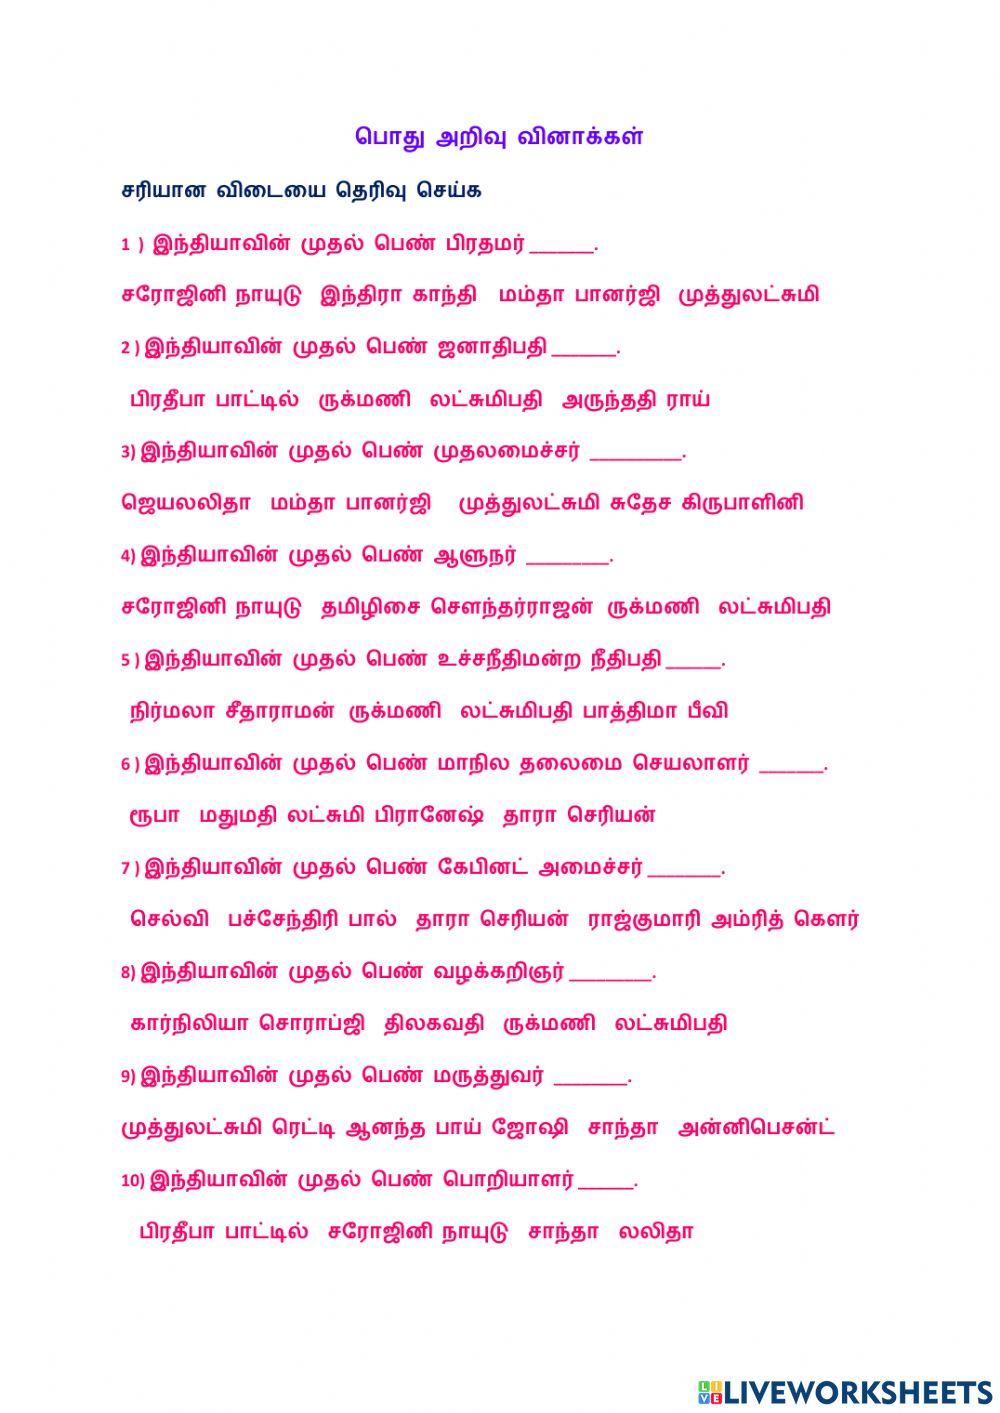 பொது அறிவு வினாக்கள்
சரியான விடையை தெரிவு செய்க
1 ) இந்தியாவின் முதல் பெண் பிரதமர் _______.
சரோஜினி நாயுடு இந்திரா காந்தி மம்தா பானர்ஜி முத்துலட்சுமி
2 ) இந்தியாவின் முதல் பெண் ஜனாதிபதி _______.
பிரதீபா பாட்டில் ருக்மணி லட்சுமிபதி அருந்ததி ராய்
3) இந்தியாவின் முதல் பெண் முதலமைச்சர் __________.
ஜெயலலிதா மம்தா பானர்ஜி முத்துலட்சுமி சுதேச கிருபாளினி
4) இந்தியாவின் முதல் பெண் ஆளுநர் _________.
சரோஜினி நாயுடு தமிழிசை சௌந்தர்ராஜன் ருக்மணி லட்சுமிபதி
5 ) இந்தியாவின் முதல் பெண் உச்சநீதிமன்ற நீதிபதி ______.
நிர்மலா சீதாராமன் ருக்மணி லட்சுமிபதி பாத்திமா பீவி
6 ) இந்தியாவின் முதல் பெண் மாநில தலைமை செயலாளர் _______.
ரூபா மதுமதி லட்சுமி பிரானேஷ் தாரா செரியன்
7 ) இந்தியாவின் முதல் பெண் கேபினட் அமைச்சர் ________.
செல்வி பச்சேந்திரி பால் தாரா செரியன் ராஜ்குமாரி அம்ரித் கௌர்
8) இந்தியாவின் முதல் பெண் வழக்கறிஞர் _________.
கார்நிலியா சொராப்ஜி திலகவதி ருக்மணி லட்சுமிபதி
9) இந்தியாவின் முதல் பெண் மருத்துவர் ________.
முத்துலட்சுமி ரெட்டி ஆனந்த பாய் ஜோஷி சாந்தா அன்னிபெசன்ட்
10) இந்தியாவின் முதல் பெண் பொறியாளர் ______.
பிரதீபா பாட்டில் சரோஜினி நாயுடு சாந்தா லலிதா
LIVE LIVEWORKSHEETS